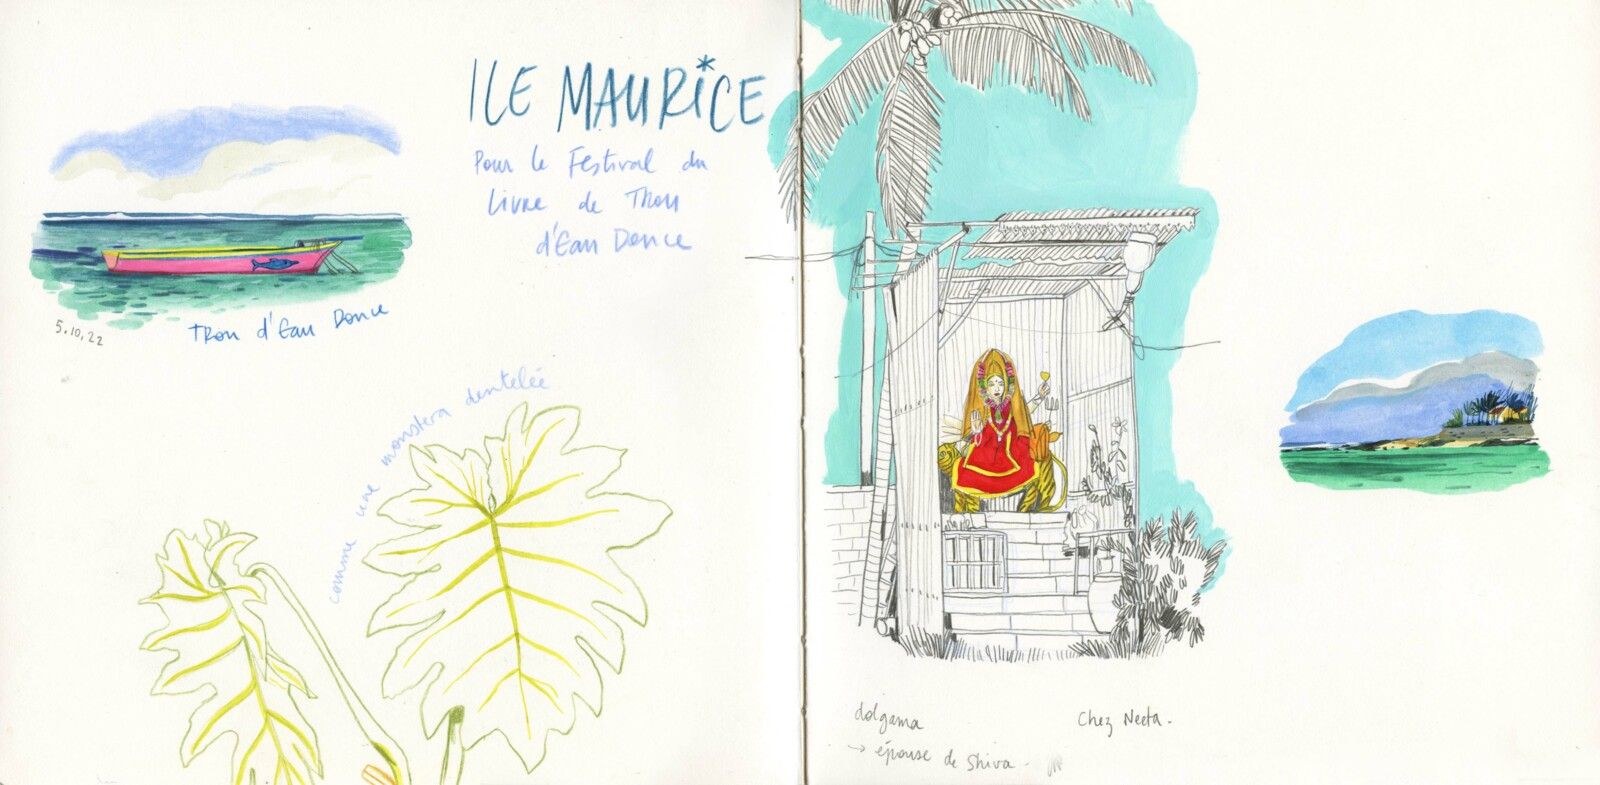 ILE MAURICE*
Pour le Festival du
Livre de Trou
d'Eau Douce
5.10.22
Trou d'Eau Douce
comme une monstera dentelée
dolgama
→ épouse de Shiva.
Chez Neeta.